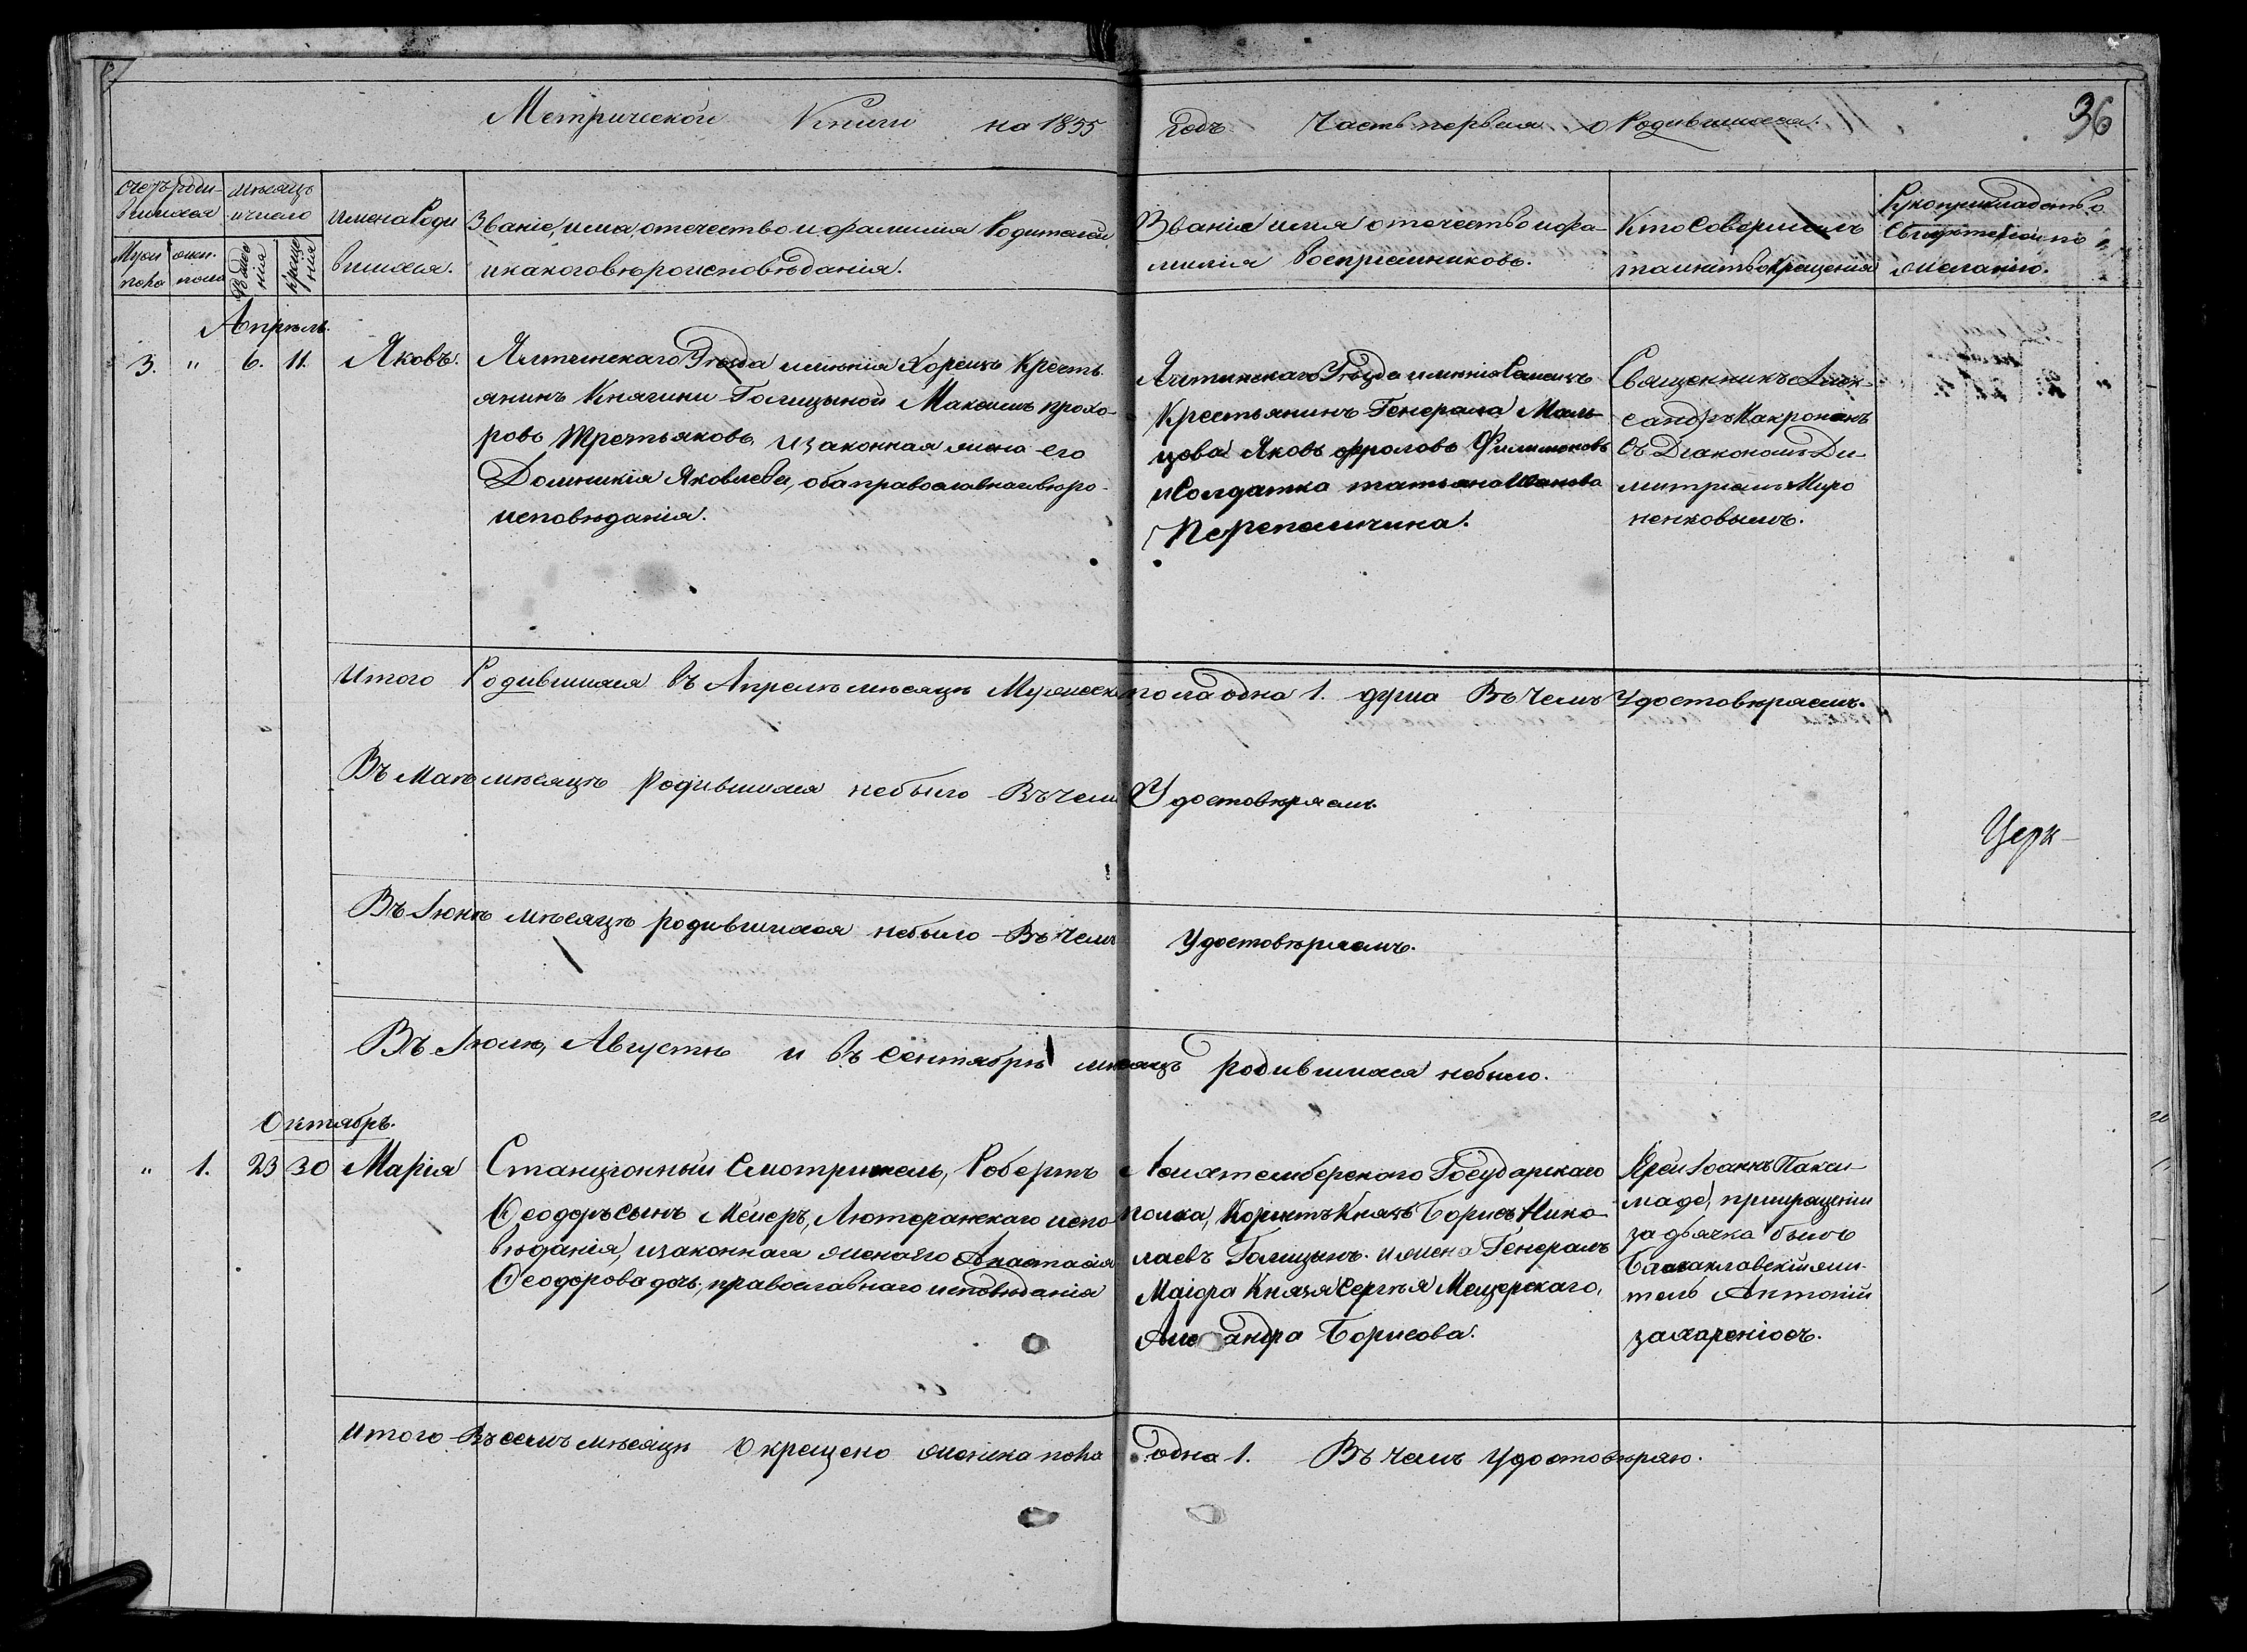 Метрической Книги на 1855 годъ Часть первая о Родившихся.
36
Счетъ роди-
вшихся
Мужи
пола
жен.
пола
Мѣсяцъ
и число
Рожде
нія
креще
нія
Имена Роди
вшихся.
Званіе, имя, отечество и фамилія Родителей,
и какого вѣроисповѣданія.
Званіе имя отечество и фа-
милія Воспріемниковъ.
Кто совершалъ
таинство крещенія
Рукоприкладство
свидѣтелей по
желанію.
Апрѣль.
3. " 6. 11. Яковъ.
Ялтинскаго Уѣзда имѣнія Хореизъ Кресть-
янинъ Княгини Голицыной Максимъ Прохо-
ровъ Третьяковъ, и законная жена его
Домникія Яковлева, оба православнаго вѣро-
исповѣданія.
Ялтинскаго Уѣзда имѣнія Симеизъ
Крестьянинъ Генерала Маль-
цова Яковъ Фроловъ Филимоновъ
и Солдатка татьяна Иванова
Перепеличина.
Священникъ Алек-
сандръ Макропанъ
Съ Діакономъ Ди-
митріемъ Миро
ненковымъ.
Итого Родившихся въ Апрелѣ мѣсяцѣ Мужеска пола одна 1. душа Въ чемъ Удостовѣряемъ.
Въ Маѣ мѣсяцѣ Родившихся небыло Въ чемъ Удостовѣряемъ.
Церк-
Въ Іюнѣ мѣсяцѣ родившихся небыло Въ чемъ Удостовѣряемъ.
Въ Іюлѣ, Августѣ и въ Сентябрѣ мѣсяцѣ родившихся небыло.
Октябрь.
" 1. 23 30 Марія
Станціонный Смотритель, Робертъ
Ѳеодоръ сынъ Мейеръ, Лютеранскаго испо
вѣданія, и законная жена его Анастасія
Ѳеодорова дочь, православнаго исповѣданія
полка, Корнетъ Князь Борисъ Нико-
лаевъ Голицынъ. и жена Генералъ
Маіора Князя Сергѣя Мещерскаго,
Александра Борисова.
Ерей Іоаннъ Пакси-
маде, при крещеніи
за дьячка былъ
Балаклавскій жи-
тель Антоній
захареніосъ.
Итого Въ семъ мѣсяцѣ Окрещено женска пола одна 1. Въ чемъ Удостовѣряю.